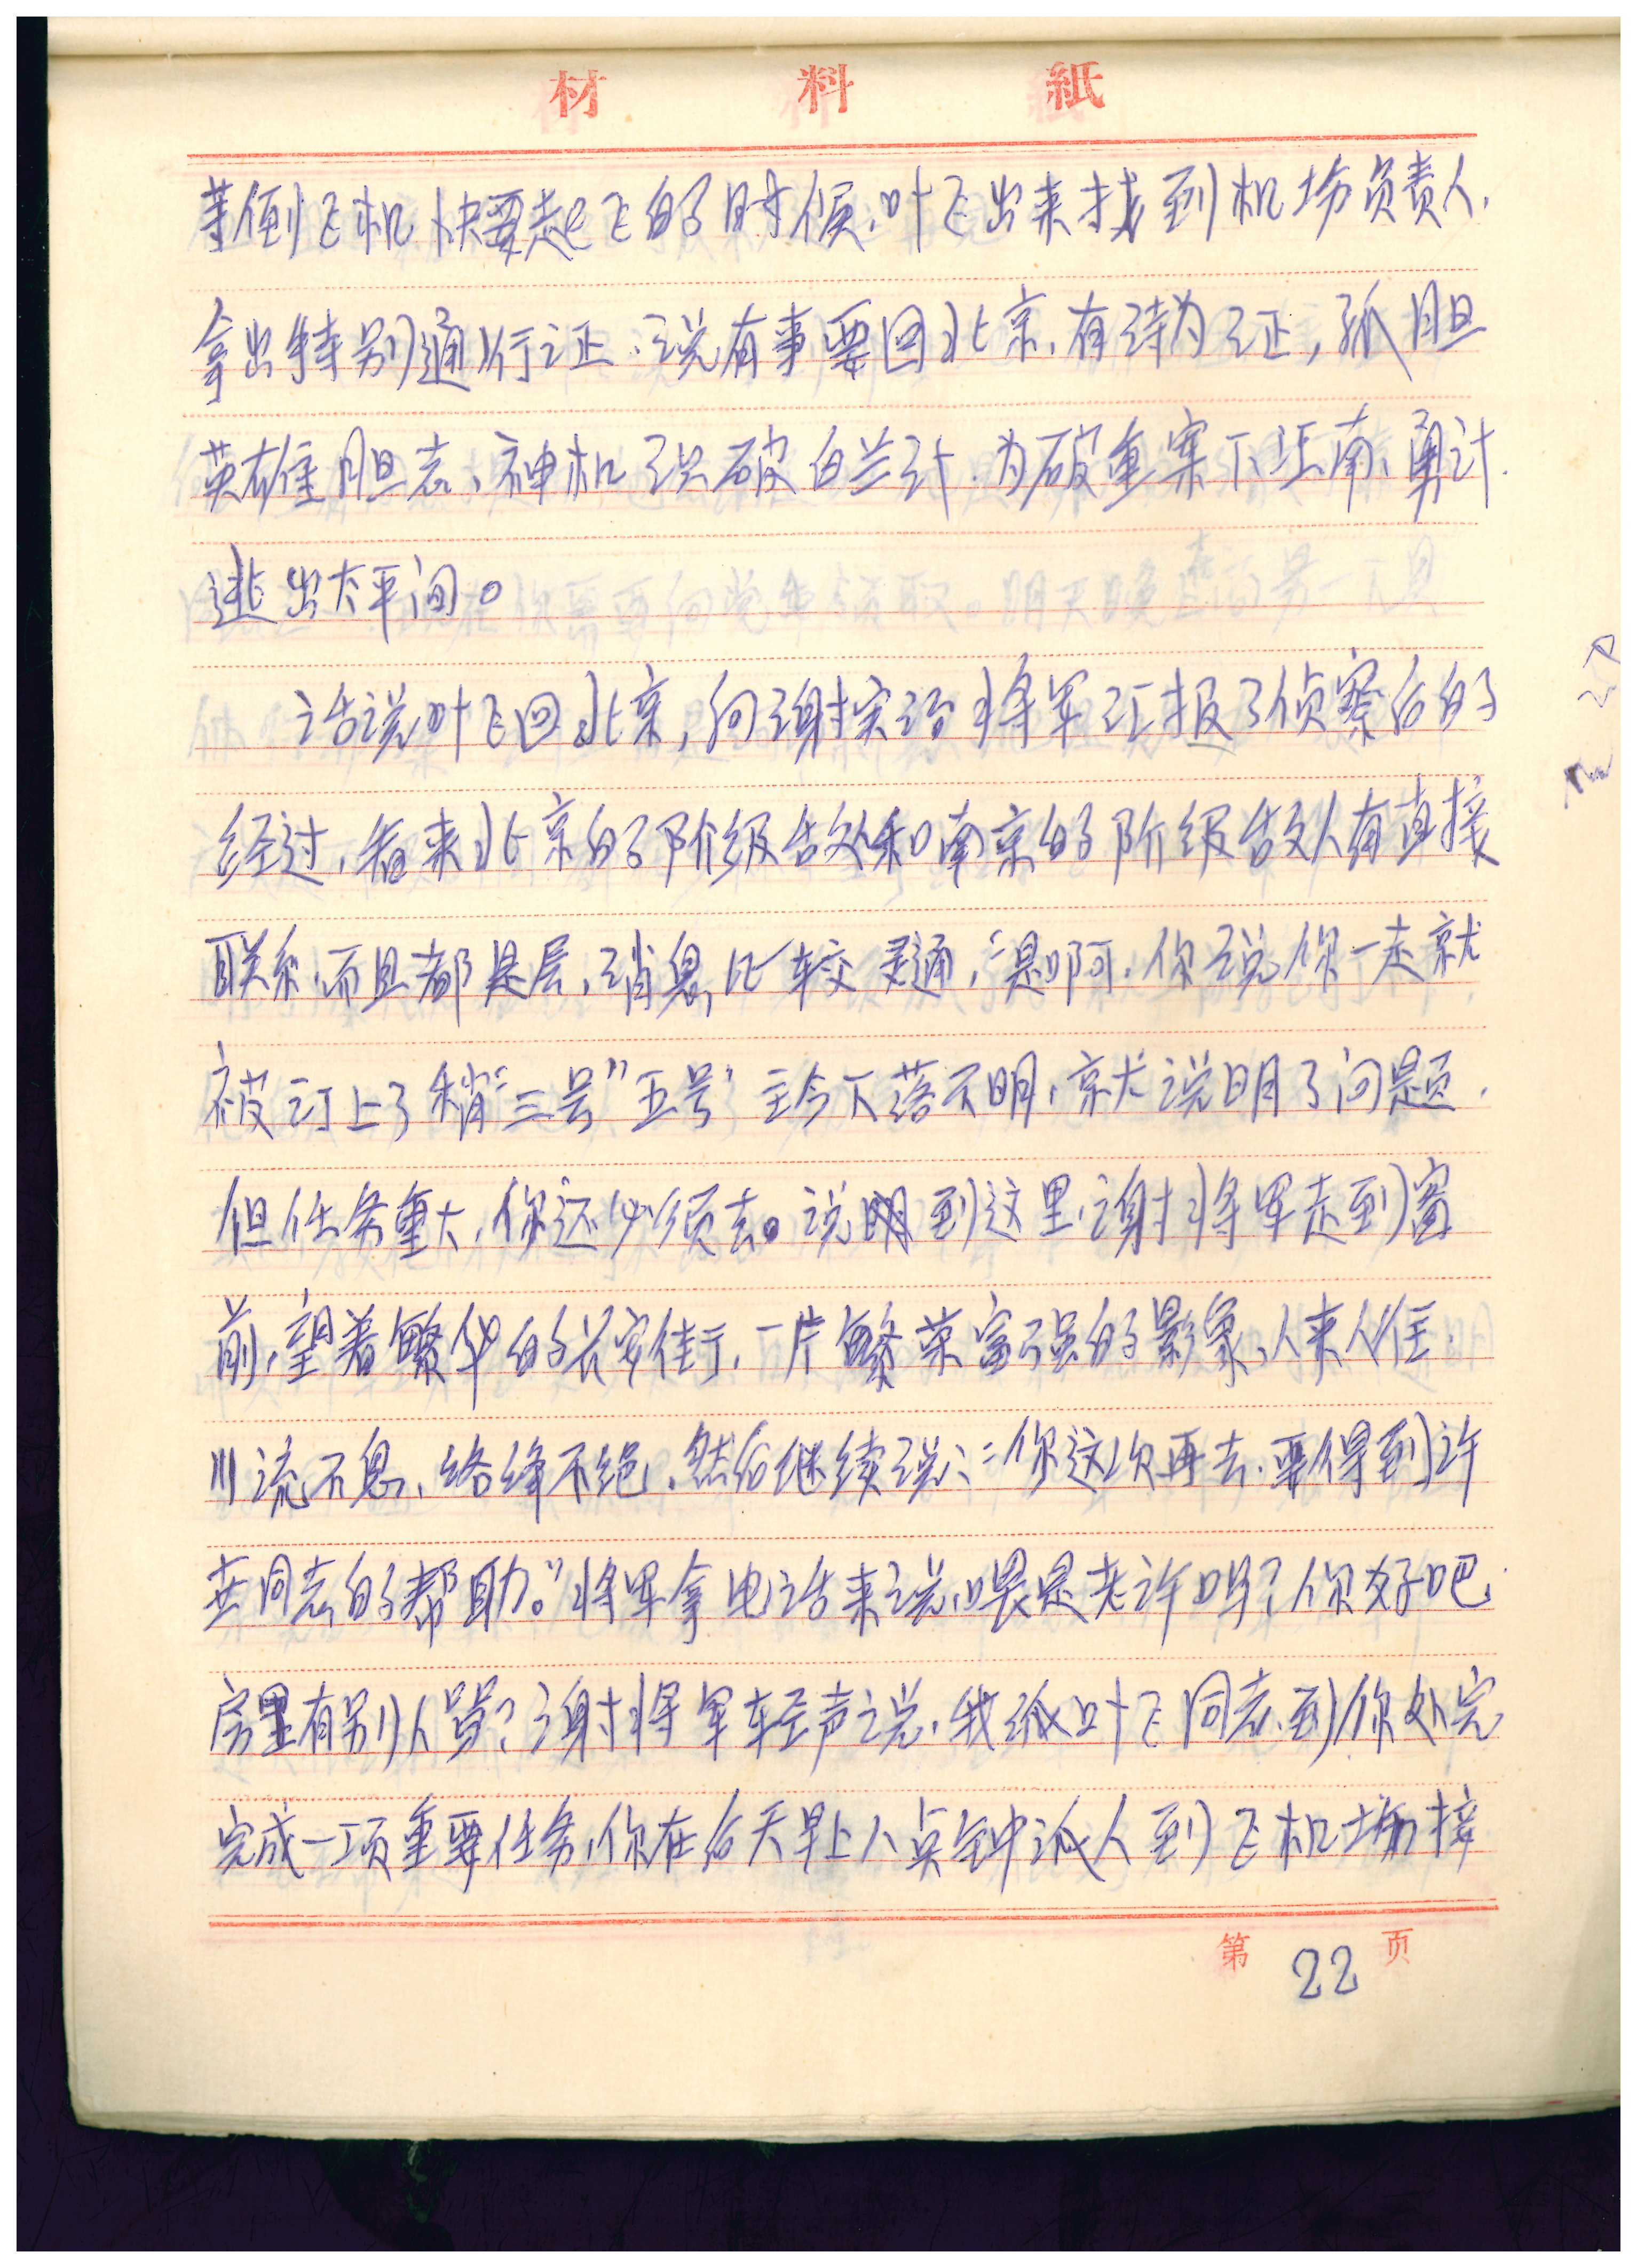 材料紙
等倒飞机快要起飞的时候，叶飞出来找到机场负责人，
拿出特别通行证，说有事要回北京，有诗为证，孤胆
英雄胆志，神机识破白兰计，为破重案下江南，勇计
逃出太平间。
话说叶飞回北京，向谢实治将军汇报了侦察后的
经过，看来北京的阶级敌人和南京的阶级敌人有直接
联系，而且都是层，消息比较灵通，“是啊，你说你一走就
被订上了稍“三号”五号”至今下落不明，就说明了问题，
但任务重大，你还必须去。说到这里，谢将军走到窗
前，望着繁华的长安街，一片繁荣富强的影象，人来人往，
川流不息，络绎不绝，然后继续说：“你这次再去，要得到许
世同志的帮助。”将军拿电话来说，喂是老许吗？你好吧，
房里有别人吗？谢将军轻声说，我派叶飞同志到你处完
完成一项重要任务，你在后天早上八点钟派人到飞机场接
第22页